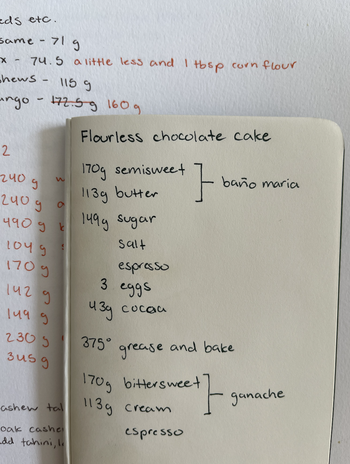 eds etc.
same - 71 g
x - 74.5 a little less and 1 tbsp corn flour
hews - 115 g
ango - 172.5 g 160 g
2
240 g
240 g
490 g
104 g
170 g
142 g
149 g
230 g
345 g
ashew
oak cashe
dd tahini,
Flourless chocolate cake
170g semisweet
113g butter
baño maria
149g sugar
salt
espresso
3 eggs
43g cocoa
375° grease and bake
170g bittersweet
113g cream
ganache
espresso